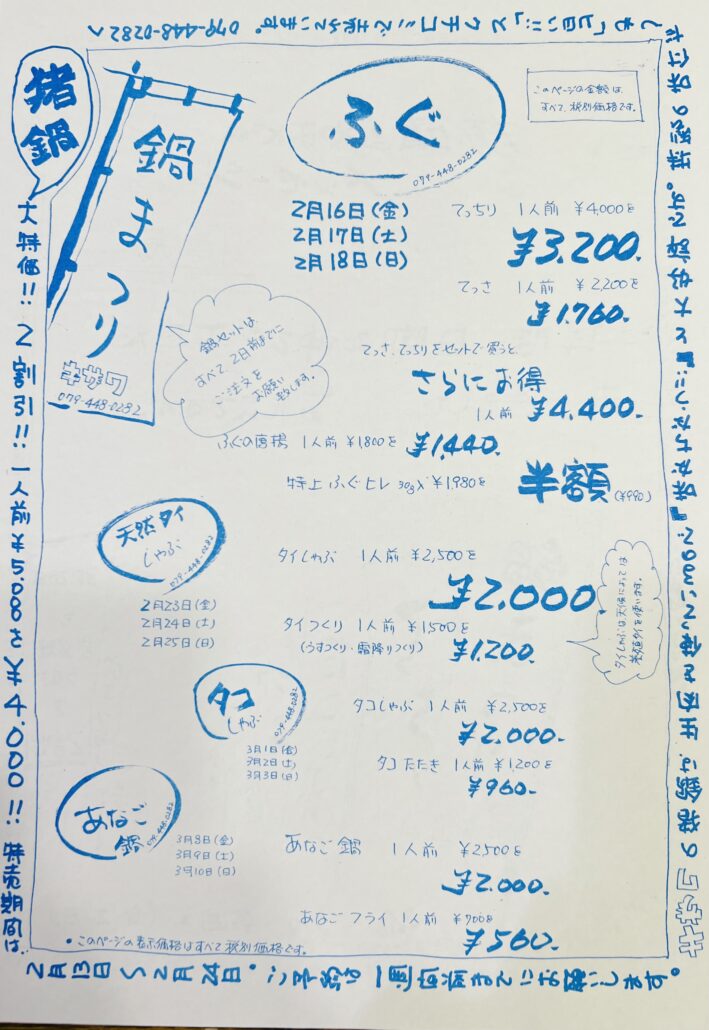 猪鍋
大特価!! 2割引!! 一人前¥5,000を¥4,000!! 特売期間は
2月13日〜2月24日。ご予約は一週間前までにお願いします。
キザワの猪鍋は、生肉を使っているので、
と大好評です。
しも「旨い!!」とクチコミで
079-448-0282へ
鍋まつり
キザワ
079-448-0282
ふぐ
079-448-0282
このページの金額は、
すべて、税別価格です。
2月16日(金)
2月17日(土)
2月18日(日)
てっちり 1人前 ¥4,000を
¥3,200.
てっさ 1人前 ¥2,200を
¥1,760.
鍋セットは、
すべて、2日前までに
ご注文を
お願い
致します。
てっさ、てっちりをセットで買うと、
さらにお得
1人前 ¥4,400.
ふぐの唐揚 1人前 ¥1,800を ¥1,440.
特上 ふぐヒレ 30g入 ¥1,980を 半額 (¥990)
天然タイ
しゃぶ
079-448-0282
2月23日(金)
2月24日(土)
2月25日(日)
タイしゃぶ 1人前 ¥2,500を
¥2,000
タイつくり 1人前 ¥1,500を
(うすつくり・霜降りつくり) ¥1,200.
タイしゃぶは、天候によっては
養殖タイを使います。
タコ
しゃぶ
079-448-0282
3月1日(金)
3月2日(土)
3月3日(日)
タコしゃぶ 1人前 ¥2,500を
¥2,000.
タコ たたき 1人前 ¥1,200を
¥960.
あなご
鍋
079-448-0282
3月8日(金)
3月9日(土)
3月10日(日)
あなご鍋 1人前 ¥2,500を
¥2,000.
あなご フライ 1人前 ¥700を
¥560.
•このページの表示価格はすべて税別価格です。